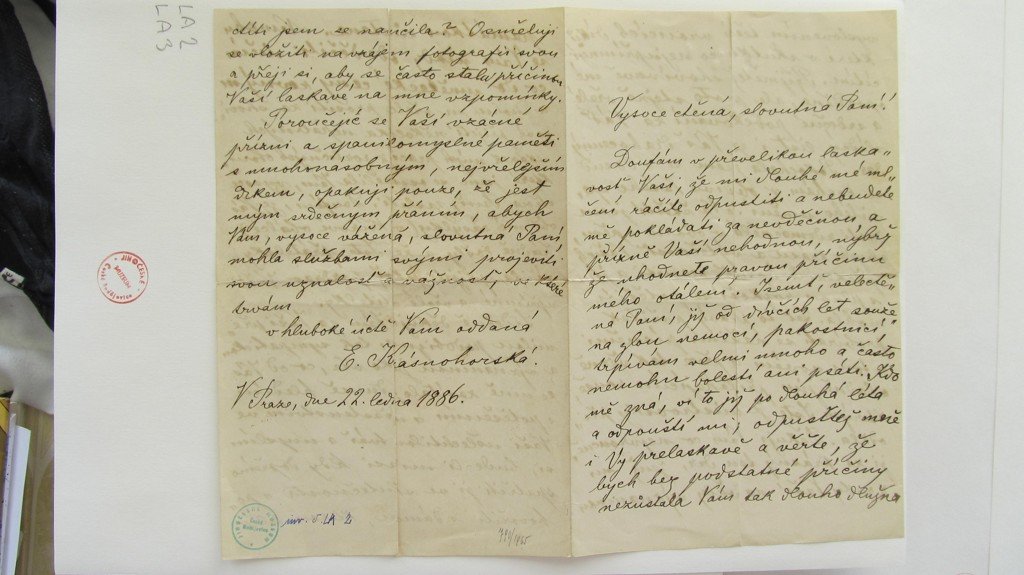 LA 2
LA 3
díti jsem se naučila? Osměluji
se složiti na vzájem fotografii svou
a přeji si, aby se často stala příčinou
Vaší laskavé na mne vzpomínky.
Poroučejíc se Vaší vzácné
přízni a spanilomyslné paměti
s mnohonásobným, nejvřelejším
díkem, opakuji pouze, že jest
mým srdečným přáním, abych
Vám, vysoce vážená, slovutná Paní
mohla službami svými projeviti
svou uznalost a vážnost, ve které
trvám
v hluboké úctě Vám oddaná
E. Krásnohorská.
V Praze, dne 22. ledna 1886.
inv. č. LA 2
Vysoce ctěná, slovutná Paní!
Doufám v převelikou laska-
vost Vaši, že mi dlouhé mé ml-
čení ráčíte odpustiti a nebudete
mě pokládati za nevděčnou a
přízně Vaší nehodnou, nýbrž
že uhodnete pravou příčinu
mého otálení. Jsemť, velectě-
ná Paní, již od dívčích let souže-
na zlou nemocí, pakostnicí,
trpívám velmi mnoho a často
nemohu bolestí ani psáti. Kdo
mě zná, ví to již po dlouhá léta
a odpouští mi; odpusťtež mně
i Vy přelaskavě a věřte, že
bych bez podstatné příčiny
nezůstala Vám tak dlouho dlužna